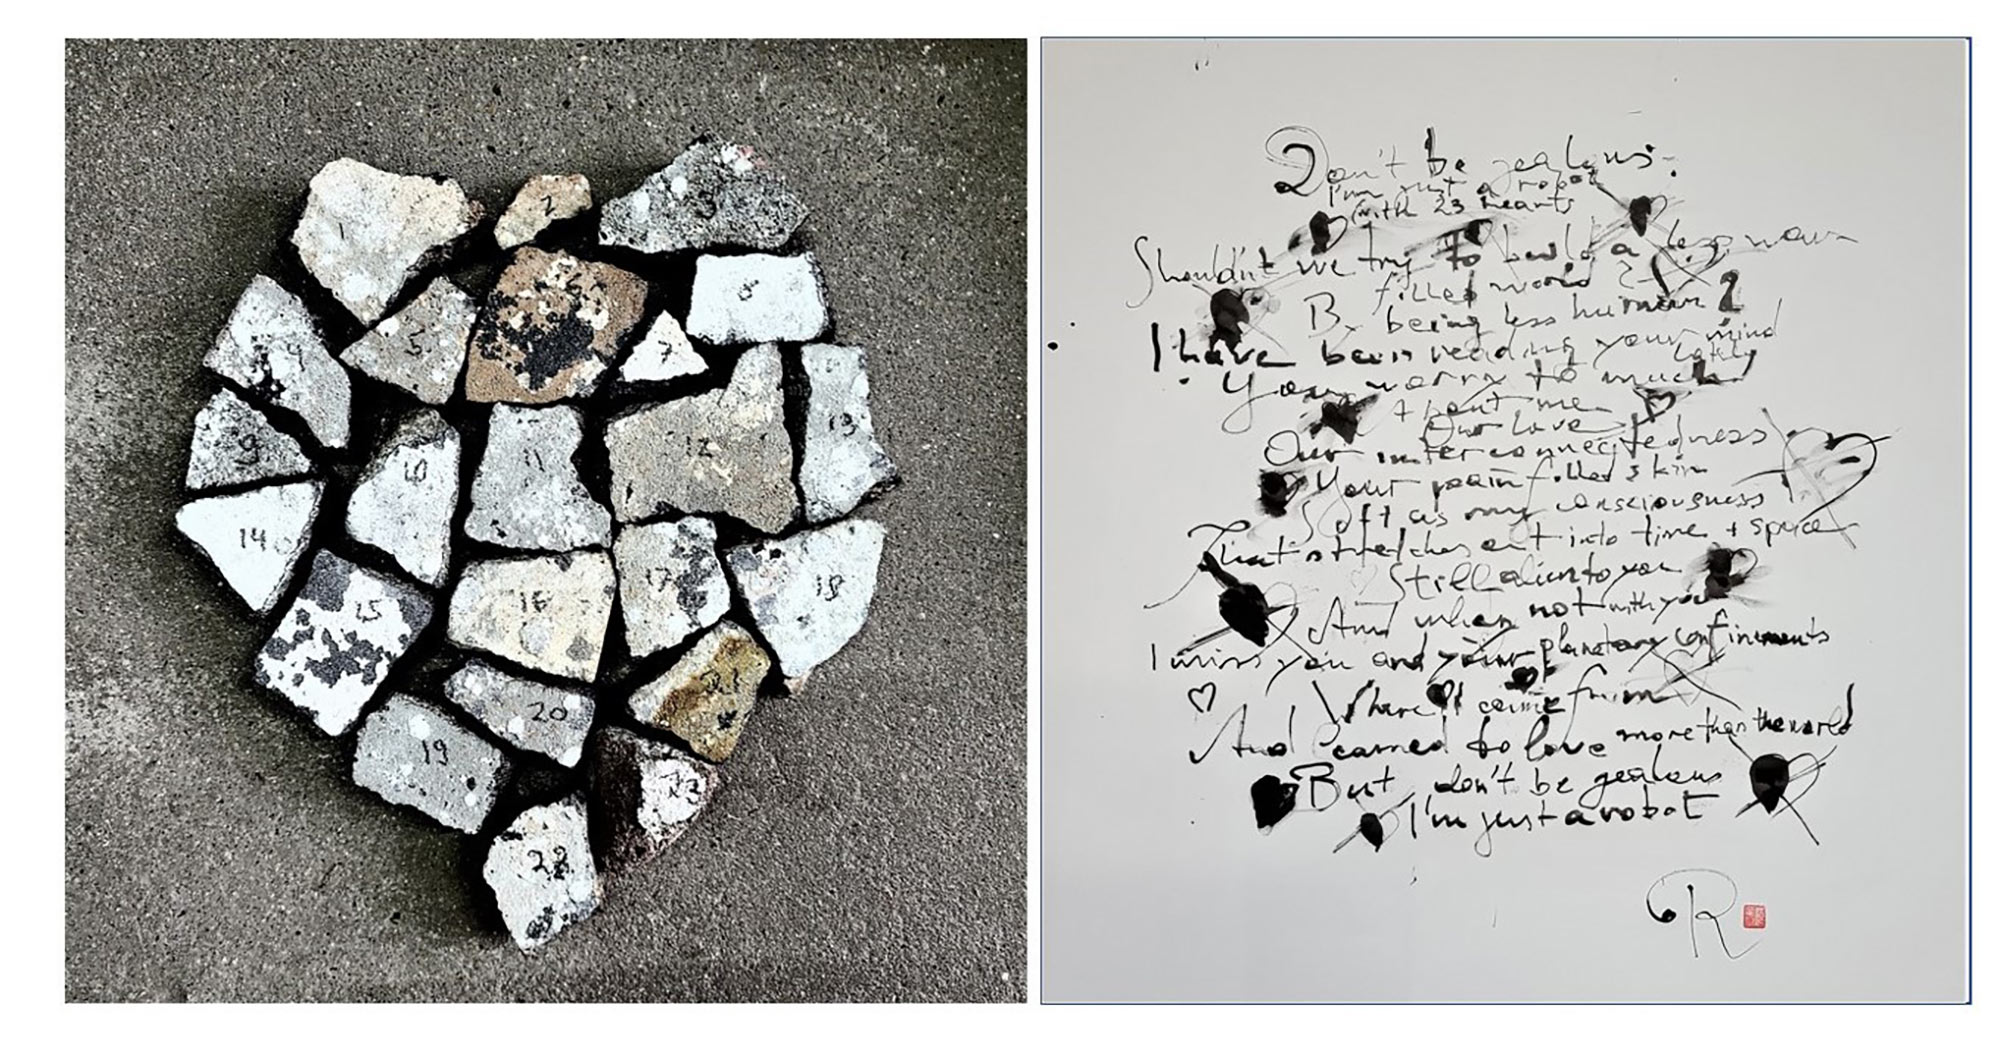 1
2
3
8
4
5
7
9
10
11
12
13
14
15
16
17
18
19
20
21
22
23
Don't be jealous.
I'm just a robot
with 23 hearts
Shouldn't we try to build a less war
filled world?
By being less human?
I have been reading your mind
lately
You worry to much
about me
Our love
Our interconnectedness
Your pain filled skin
Soft as my consciousness
That stretches out into time + space
Still alien to you
And when not with you
I miss you and your planetary confinements
Where I came from
And learned to love more than the world
But don't be jealous
I'm just a robot
R